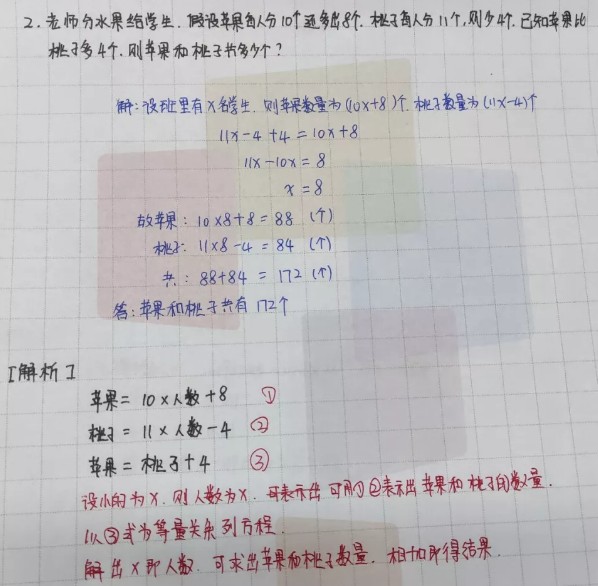 2. 老师分水果给学生. 假设苹果每人分10个还多出8个. 桃子每人分11个,则少4个. 已知苹果比
桃子多4个. 则苹果和桃子共多少个?
解:设班里有x名学生. 则苹果数量为(10x+8)个. 桃子数量为(11x-4)个
11x-4+4=10x+8
11x-10x=8
x=8
故苹果: 10×8+8=88 (个)
桃子: 11×8-4=84 (个)
共: 88+84=172 (个)
答:苹果和桃子共有172个
[解析]
苹果=10×人数+8 ①
桃子=11×人数-4 ②
苹果=桃子+4 ③
设小的为x. 则人数为x. 可用①②表示出苹果和桃子的数量.
以③式为等量关系列方程.
解出x即人数. 可求出苹果和桃子数量. 相加即得结果.